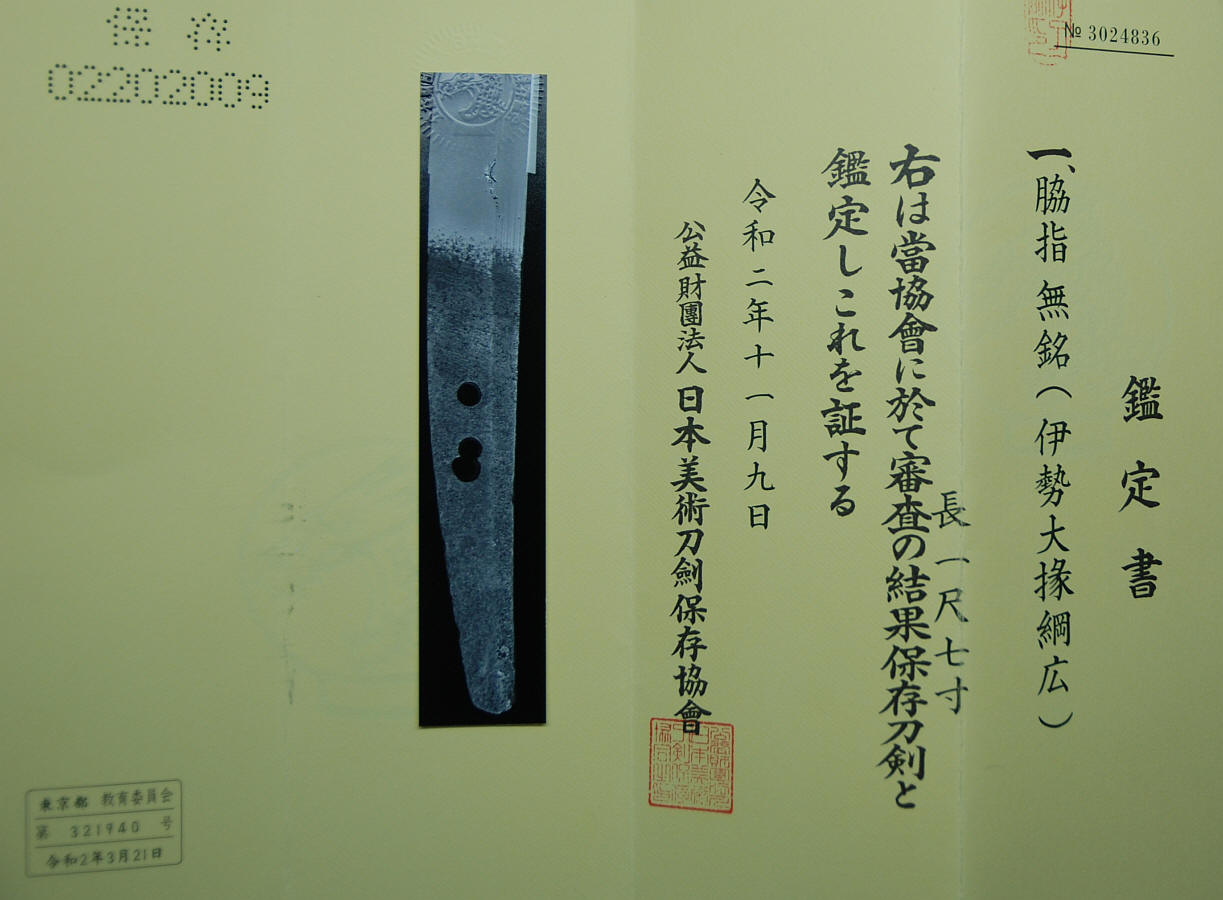 № 3024836
鑑定書
一、脇指 無銘(伊勢大掾綱広)
長一尺七寸
右は當協會に於て審査の結果保存刀剣と
鑑定しこれを証する
令和二年十一月九日
公益財團法人 日本美術刀劍保存協會
保存
02202009
東京都 教育委員会
第 321940 号
令和2年3月21日